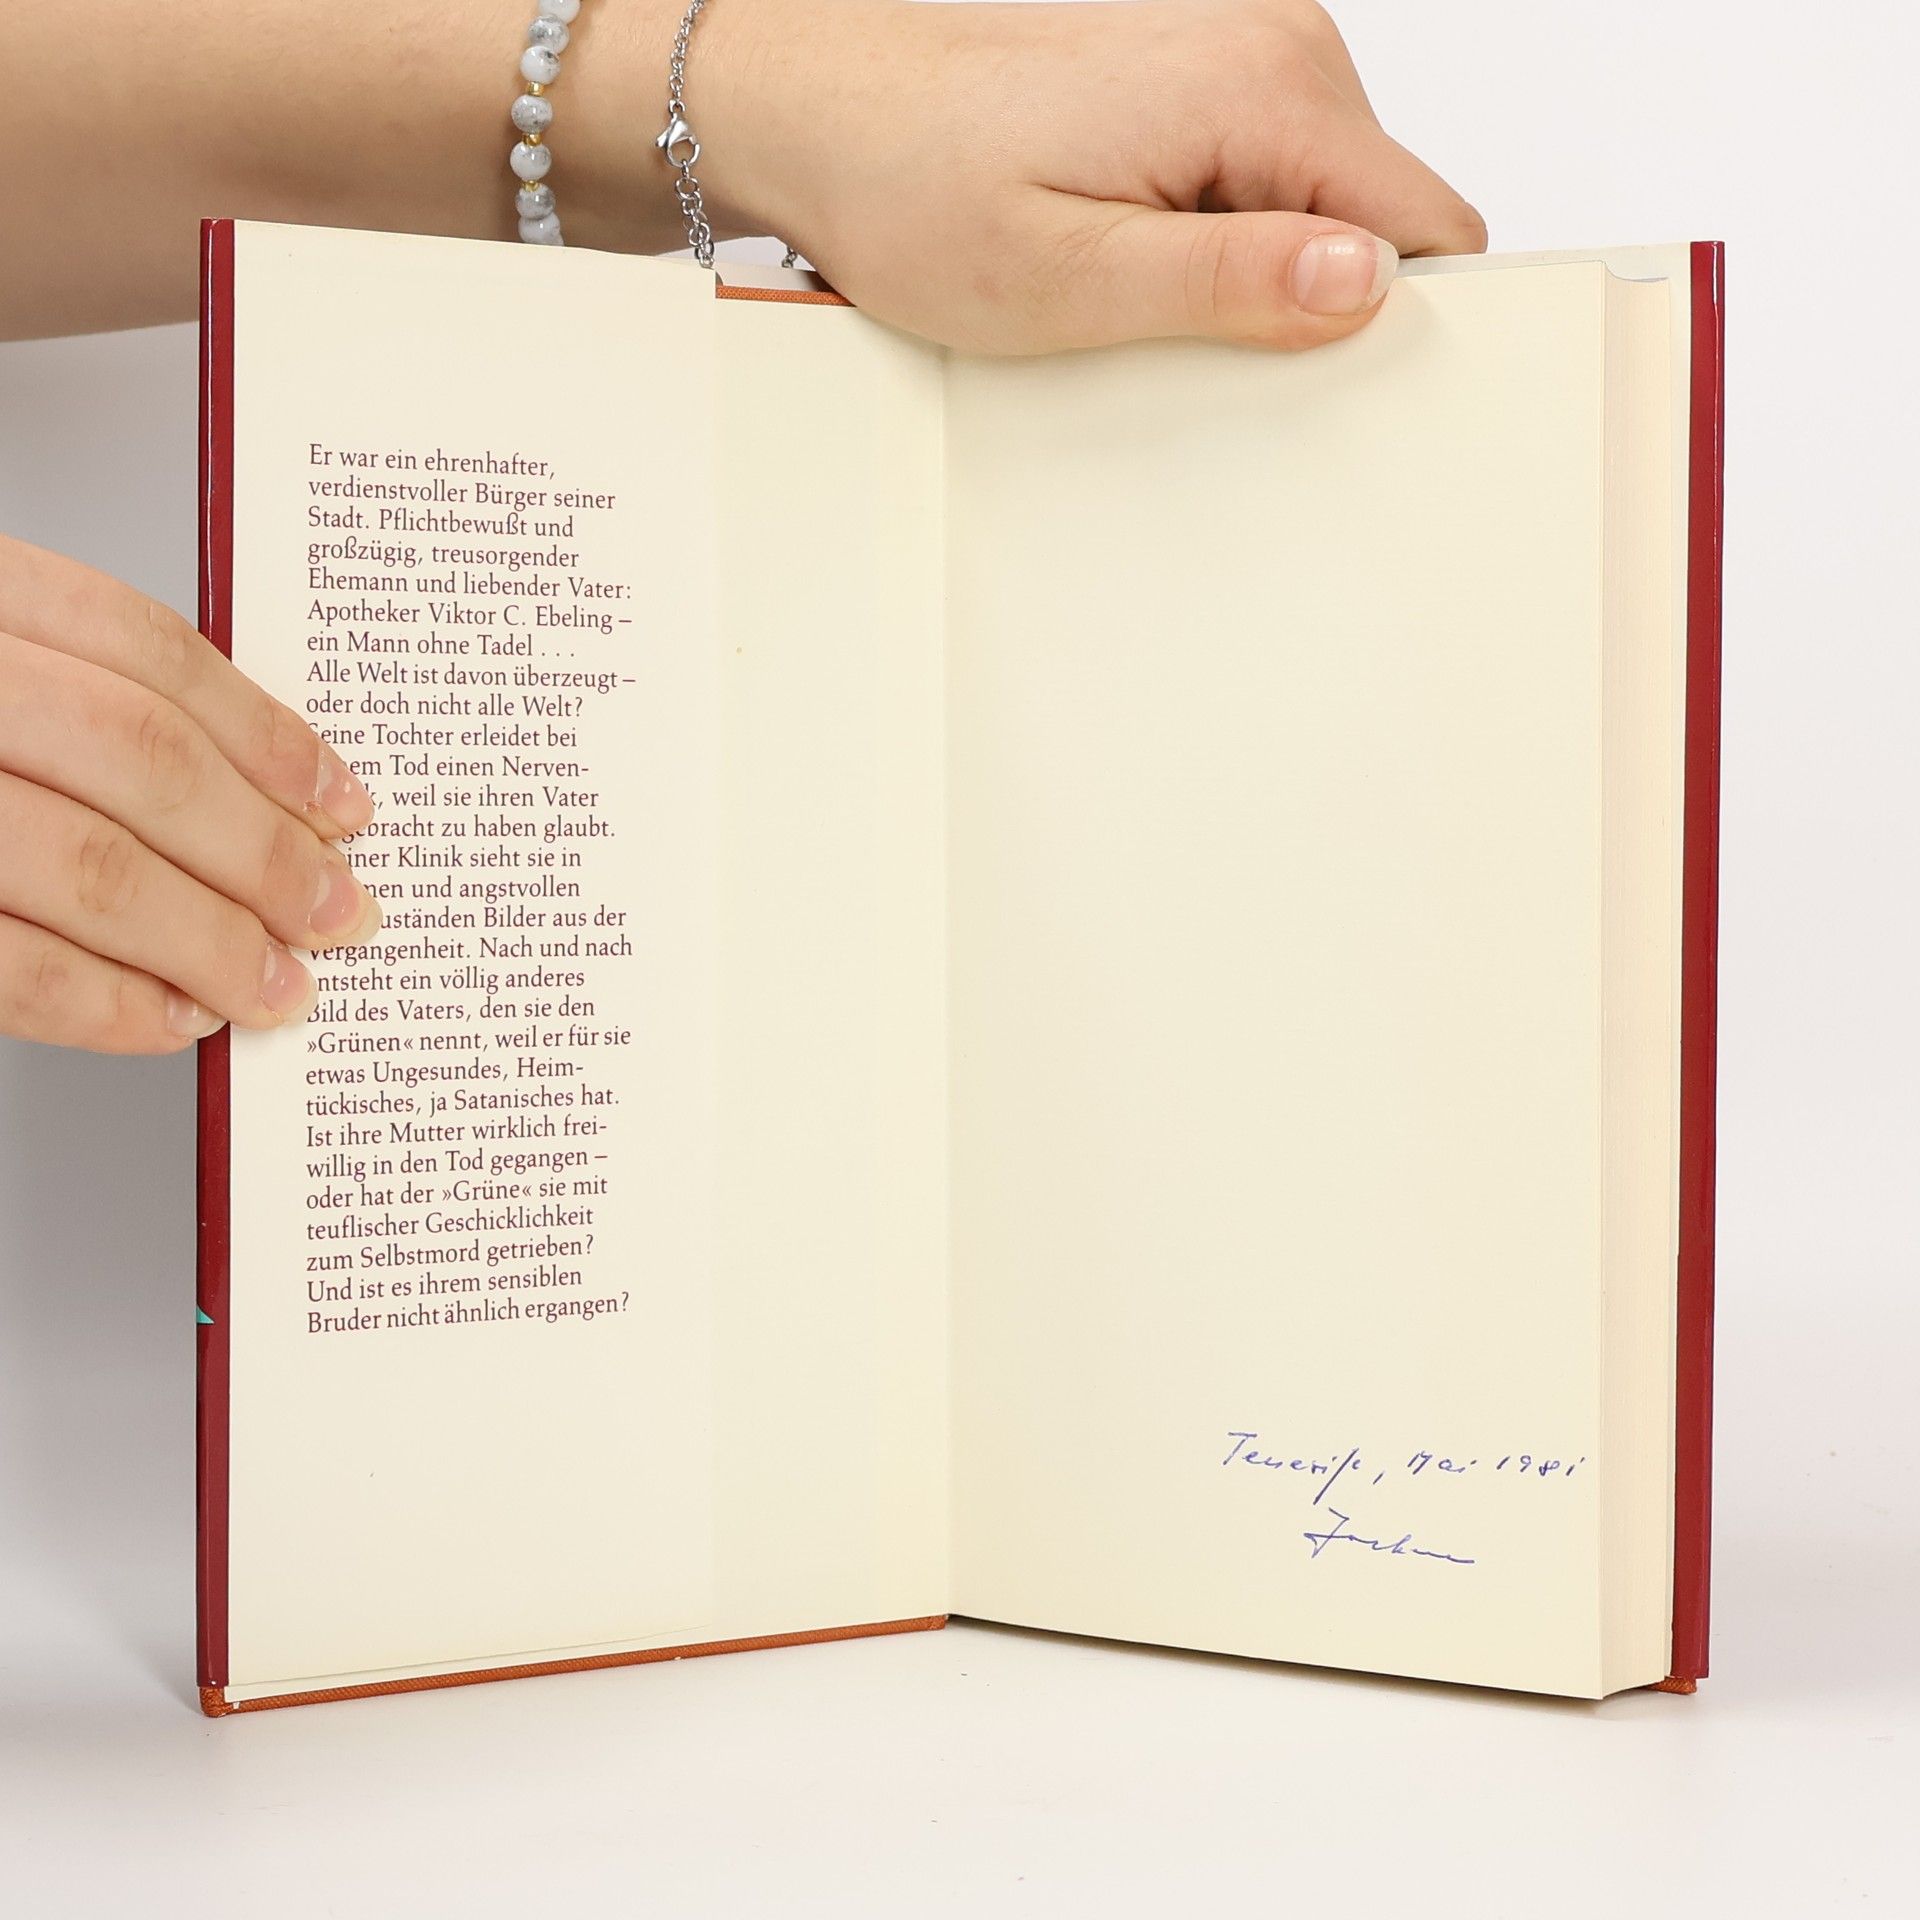 Er war ein ehrenhafter,
verdienstvoller Bürger seiner
Stadt. Pflichtbewußt und
großzügig, treusorgender
Ehemann und liebender Vater:
Apotheker Viktor C. Ebeling –
ein Mann ohne Tadel . . .
Alle Welt ist davon überzeugt –
oder doch nicht alle Welt?
Seine Tochter erleidet bei
Tod einen Nerven-
weil sie ihren Vater
zu haben glaubt.
Klinik sieht sie in
und angstvollen
Bilder aus der
Vergangenheit. Nach und nach
entsteht ein völlig anderes
Bild des Vaters, den sie den
»Grünen« nennt, weil er für sie
etwas Ungesundes, Heim-
tückisches, ja Satanisches hat.
Ist ihre Mutter wirklich frei-
willig in den Tod gegangen –
oder hat der »Grüne« sie mit
teuflischer Geschicklichkeit
zum Selbstmord getrieben?
Und ist es ihrem sensiblen
Bruder nicht ähnlich ergangen?
Tenerife, Mai 1981